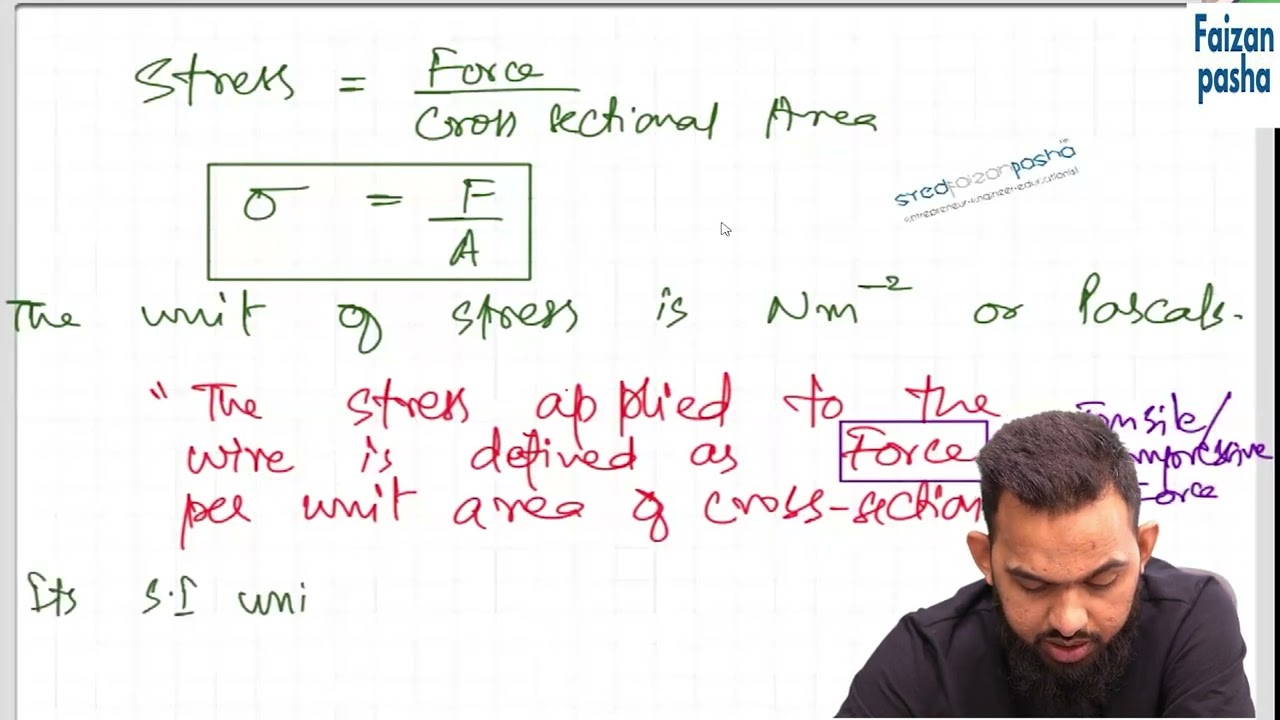 Faizan
pasha
Stress = Force
Cross sectional Area
sredfaizanpasha
entrepreneur-engineer-educationist
σ = F
A
The unit of stress is Nm⁻² or Pascals.
"The stress applied to the
wire is defined as Force
per unit area of cross-section
Force
Its S.I uni